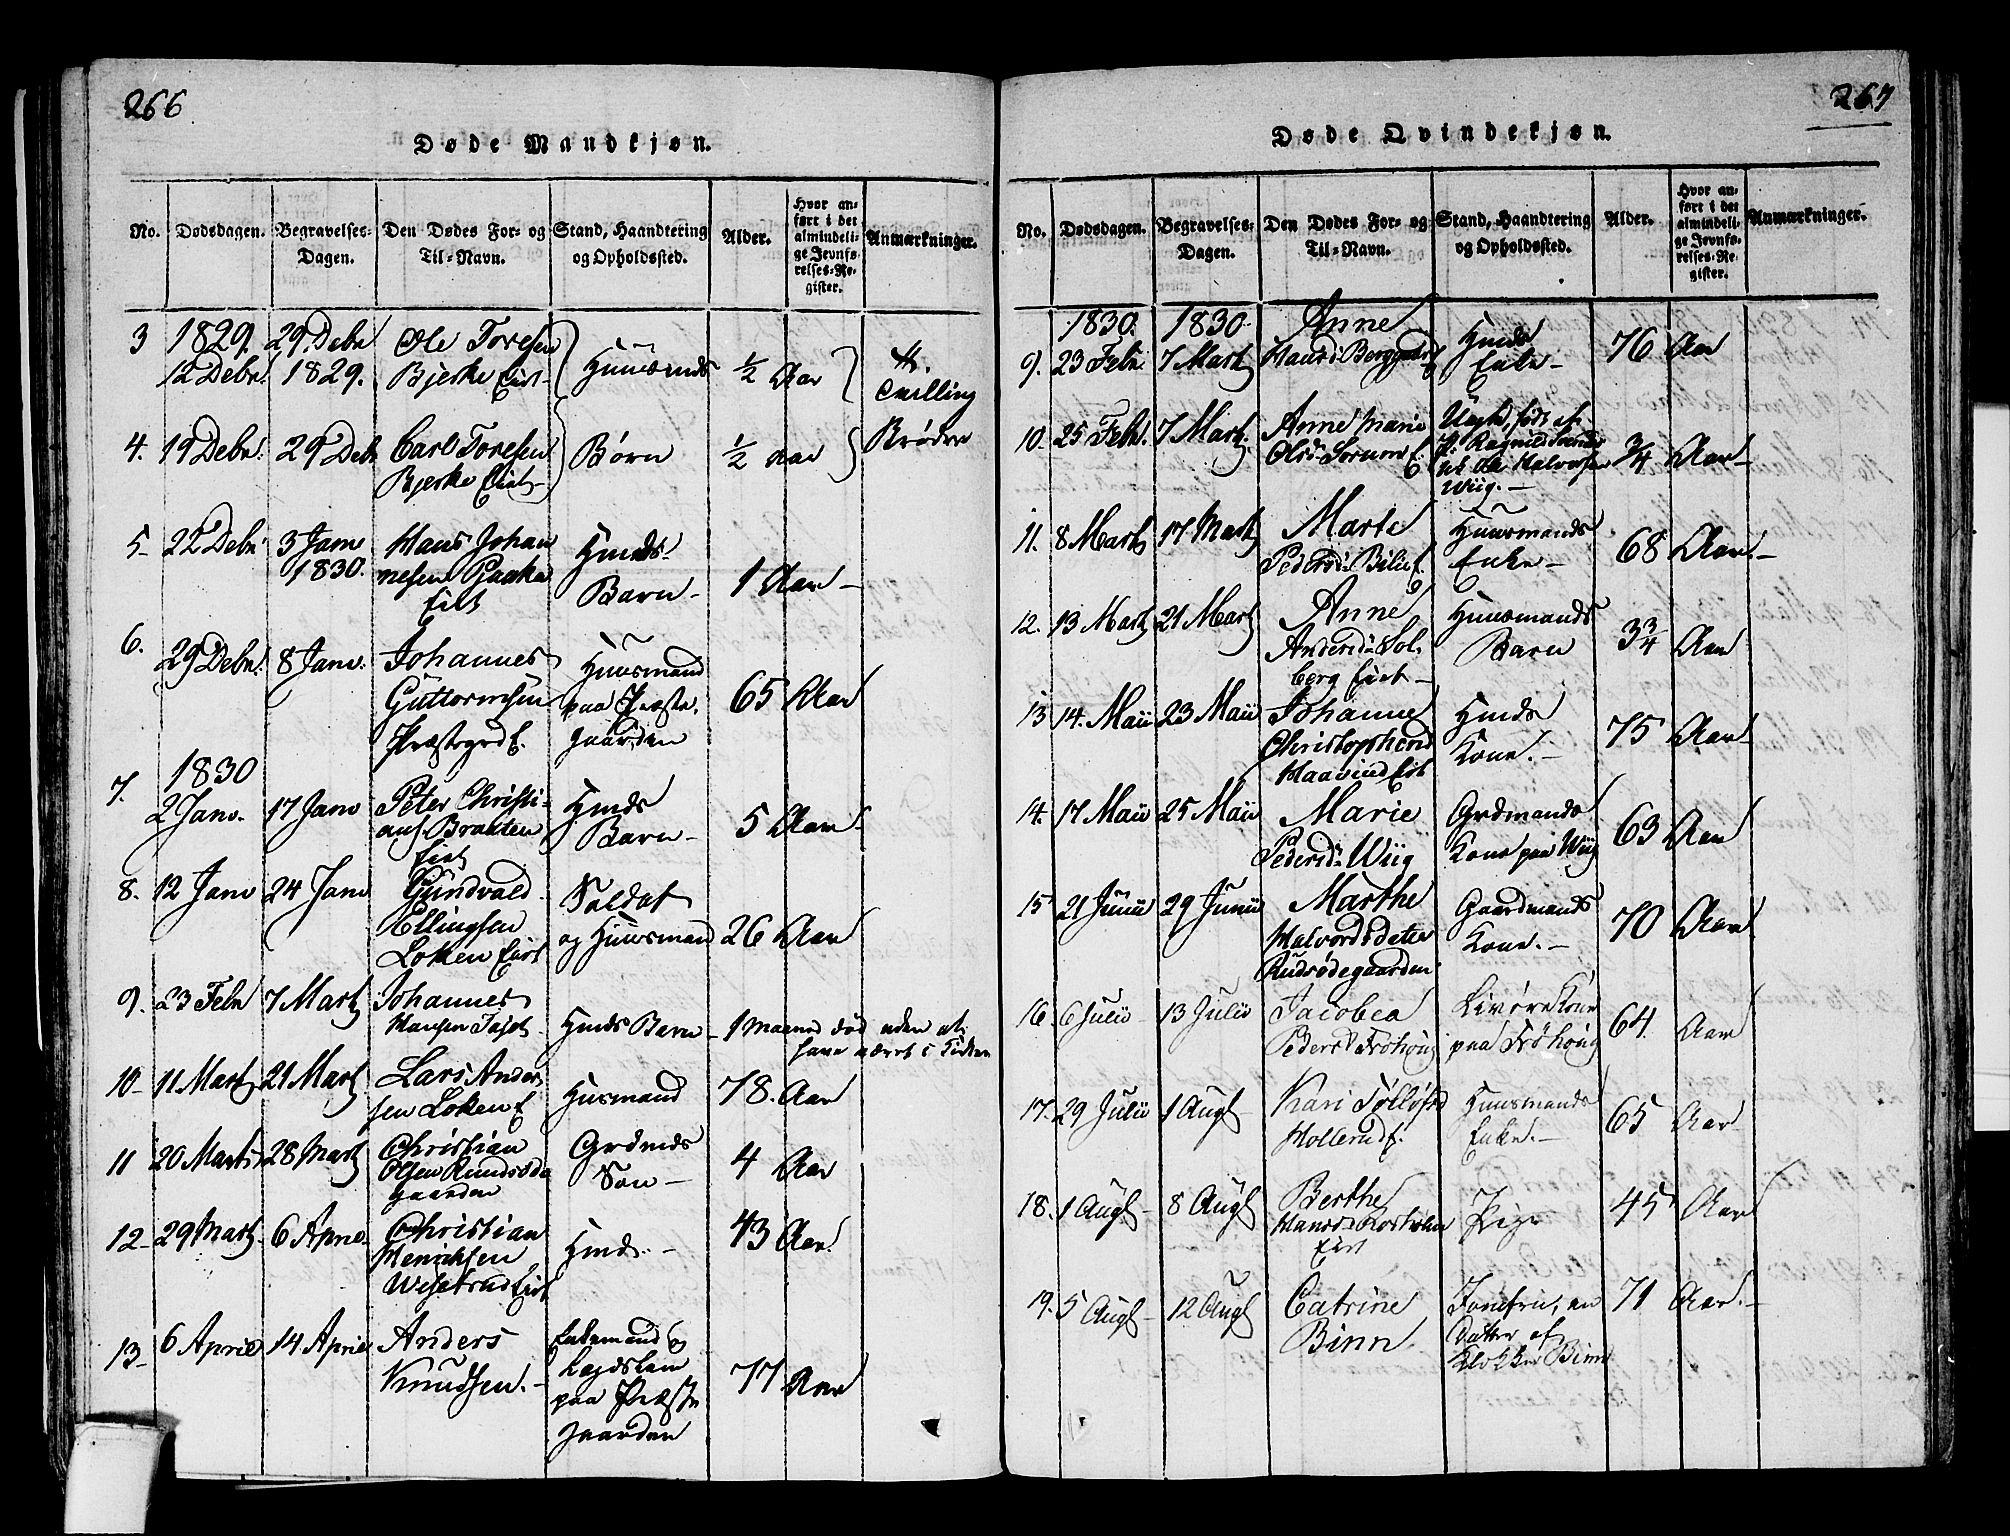 266
Døde Mandkjøn.
No. Dødsdagen. Begravelses-Dagen. Den Dødes For- og Til-Navn. Stand, Haandtering og Opholdssted. Alder. Hvor anført i det almindelige Jevnførelses-Register. Anmærkninger.
3 1829. 12 Debr. 29 Debr 1829. Ole Toresen Bjerke Eiet Huusmands ½ Aar Tvilling
4. 19 Debr. 29 Debr Carl Toresen Bjerke Eiet Børn ½ Aar Brødre
5 22 Debr 3 Janv 1830. Hans Johannesen Eiet Hmds Barn 1 Aar
6. 29 Debr. 8 Janv. Johannes Guttormsen Præstegrd E. Huusmand paa Præstegaarden 65 Aar
7. 1830 2 Janv. 17 Janv Peter Christians. Braaten Eiet Hmds Barn 5 Aar
8. 12 Janv 24 Janv Gundvald Ellingsen Løken Eiet Soldat og Huusmand 26 Aar
9. 23 Febr 7 Marts Johannes Hansen Hmds Barn 1 Maaned død uden at have været i Kirken
10 11 Marts 21 Marts Lars Andersen Løken E. Husmand 78. Aar
11 20 Marts 28 Marts Christian Olsen Rudsødegaarden Grdmds Søn 4 Aar
12 29 Marts 6 April Christian Henrichsen Eiet Hmd. 43 Aar.
13 6 April 14 April Anders Knudsen. Enkemand og Lægdslem paa Præstegaarden 77 Aar
267
Døde Qvindekjøn.
No. Dødsdagen. Begravelses-Dagen. Den Dødes For- og Til-Navn. Stand, Haandtering og Opholdssted. Alder. Hvor anført i det almindelige Jevnførelses-Register. Anmærkninger.
9. 1830. 23 Febr. 1830 7 Marts Anne Hansd. Hmds Enke 76 Aar
10. 25 Febr. 7 Marts. Anne Marie Olsd. E. Uægte, født af P. Ragnild ved Ole Halvorsen Wiig. ¾ Aar
11. 8 Marts 17 Marts Marte Pedersd. E. Huusmands Enke 68 Aar.
12. 13 Marts 21 Marts Anne Andersd. Solberg Eiet Huusmands Barn 3¾ Aar
13 14. Maii 23 Maii Johanne Christophersd Haavind Eiet Hmds Kone. 75 Aar
14. 17 Maii 25 Maii Marie Pedersd. Wiig Grdmands Kone paa Wiig 63 Aar
15 21 Junii 29 Junii Marthe Halvordsdatter Rudsødegaarden Gaardmands Kone. 70 Aar
16. 6 Julii 13 Julii Jacobea Pedersd Frøhoug paa Frøhoug 64. Aar
17. 29 Julii 1 Augt Kari Hollerud E. Huusmands Enke. 65 Aar
18. 1 Augt 8 Augt Berthe Hansd. Eiet Pige 45 Aar
19. 5 Augt 12 Augt Catrine Binn Jomfru, en Datter af Klokker Binn 71 Aar.